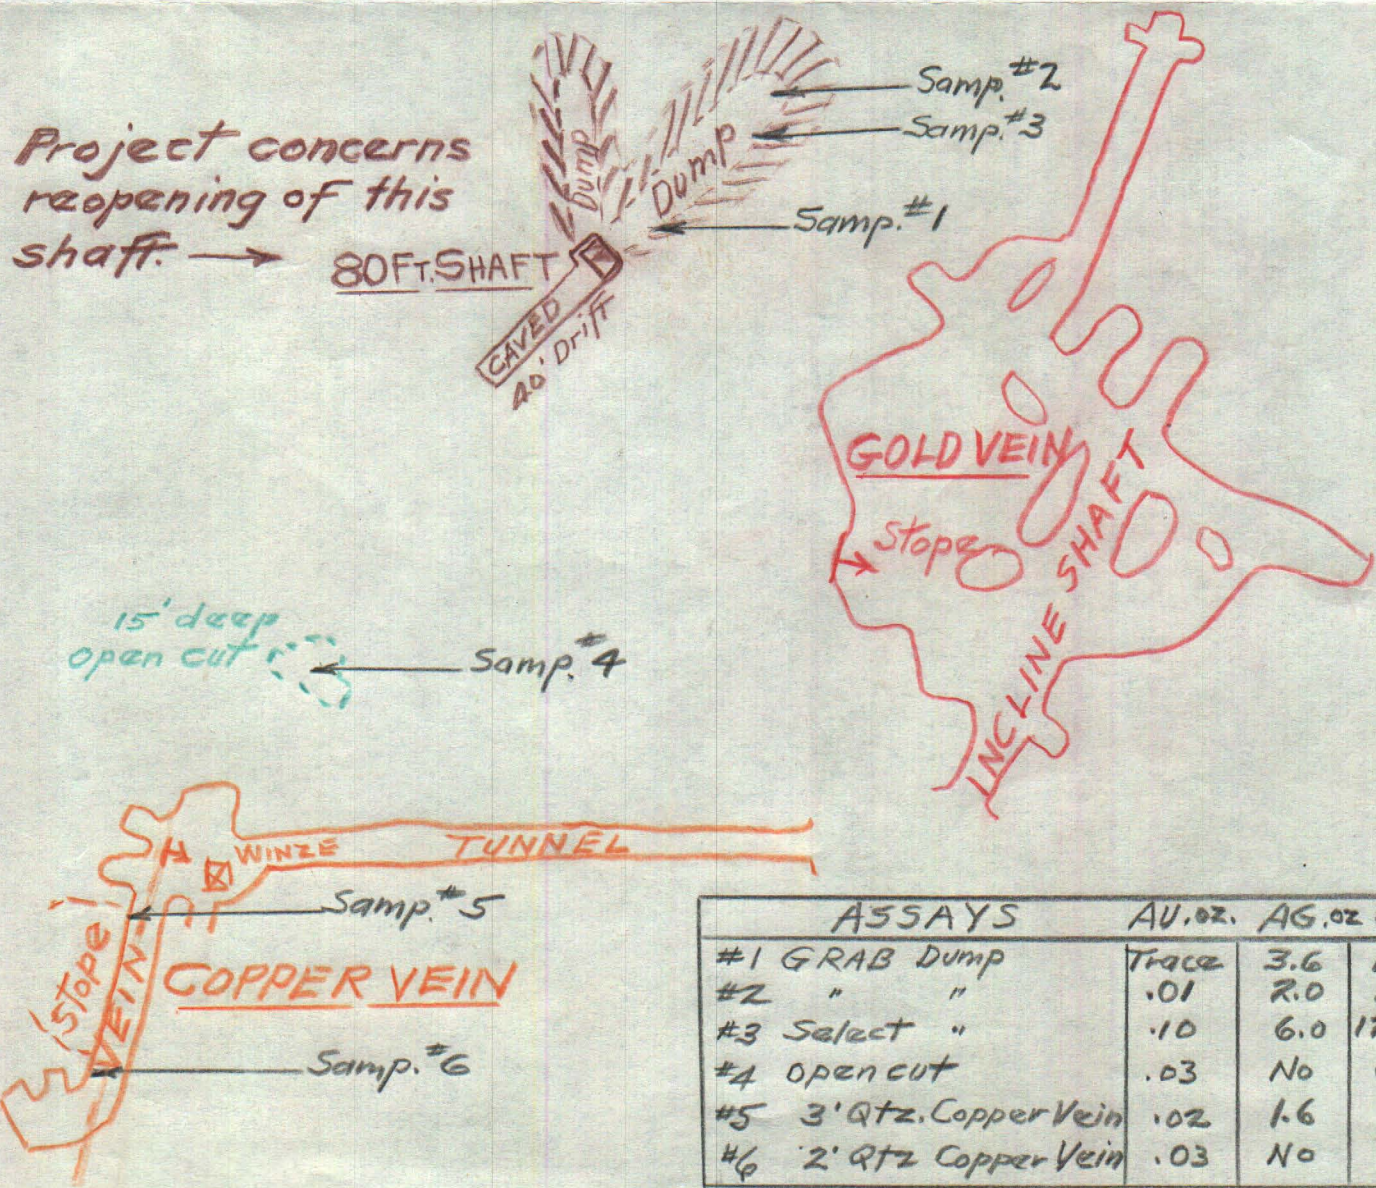 Project concerns
reopening of this
shaft.
80 FT. SHAFT
CAVED
40' Drift
Dump
Dump
Samp. #2
Samp. #3
Samp. #1
GOLD VEIN
Stope
INCLINE SHAFT
15' deep
open cut
Samp. #4
WINZE
TUNNEL
Samp. #5
Stope
VEIN
COPPER VEIN
Samp. #6
ASSAYS AU. OZ. AG. OZ
#1 GRAB Dump Trace 3.6
#2 " " .01 2.0
#3 Select " .10 6.0
#4 open cut .03 No
#5 3' Qtz. Copper Vein .02 1.6
#6 2' Qtz Copper Vein .03 No